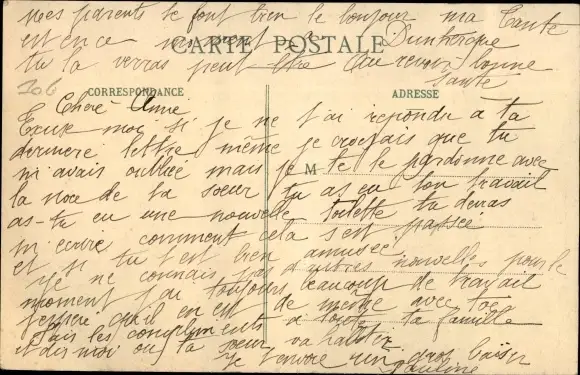 mes parents te font bien le bonjour ma tante
est en ce moment à Dunkerque
CARTE POSTALE
tu la verras peut être Au revoir bonne
santé
CORRESPONDANCE
ADRESSE
Chere Anne
Excuse moi si je ne t'ai repondu a ta
derniere lettre même je croyais que tu
m'avais oubliée mais je te le pardonne avec
M
la noce de ta soeur tu as eu ton travail
as-tu eu une nouvelle toilette tu devras
m'ecrire comment cela s'est passée
et si tu t'est bien amusée
je ne connais pas d'autres nouvelles pour le
moment j'ai toujours beaucoup de travail
j'espere qu'il en est de meme avec toi
fais les compliments a toute ta famille
et dis moi ou ta soeur va habiter
je t'envoie un gros baiser
Pauline